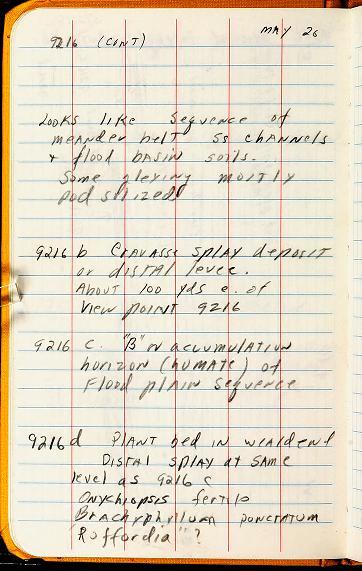 MAY 26
9216 (CONT)
Looks like sequence of
meander belt ss channels
+ flood basin soils.
Some gleying mostly
podsolized
9216 b Cravasse splay deposit
or distal levee.
About 100 yds e. of
View point 9216
9216 c. "B" or accumulation
horizon (humate) of
Flood plain sequence
9216 d Plant bed in wealden
Distal splay at same
level as 9216 c
Onychiopsis
Brachyphyllum punctatum
"Ruffordia" ?